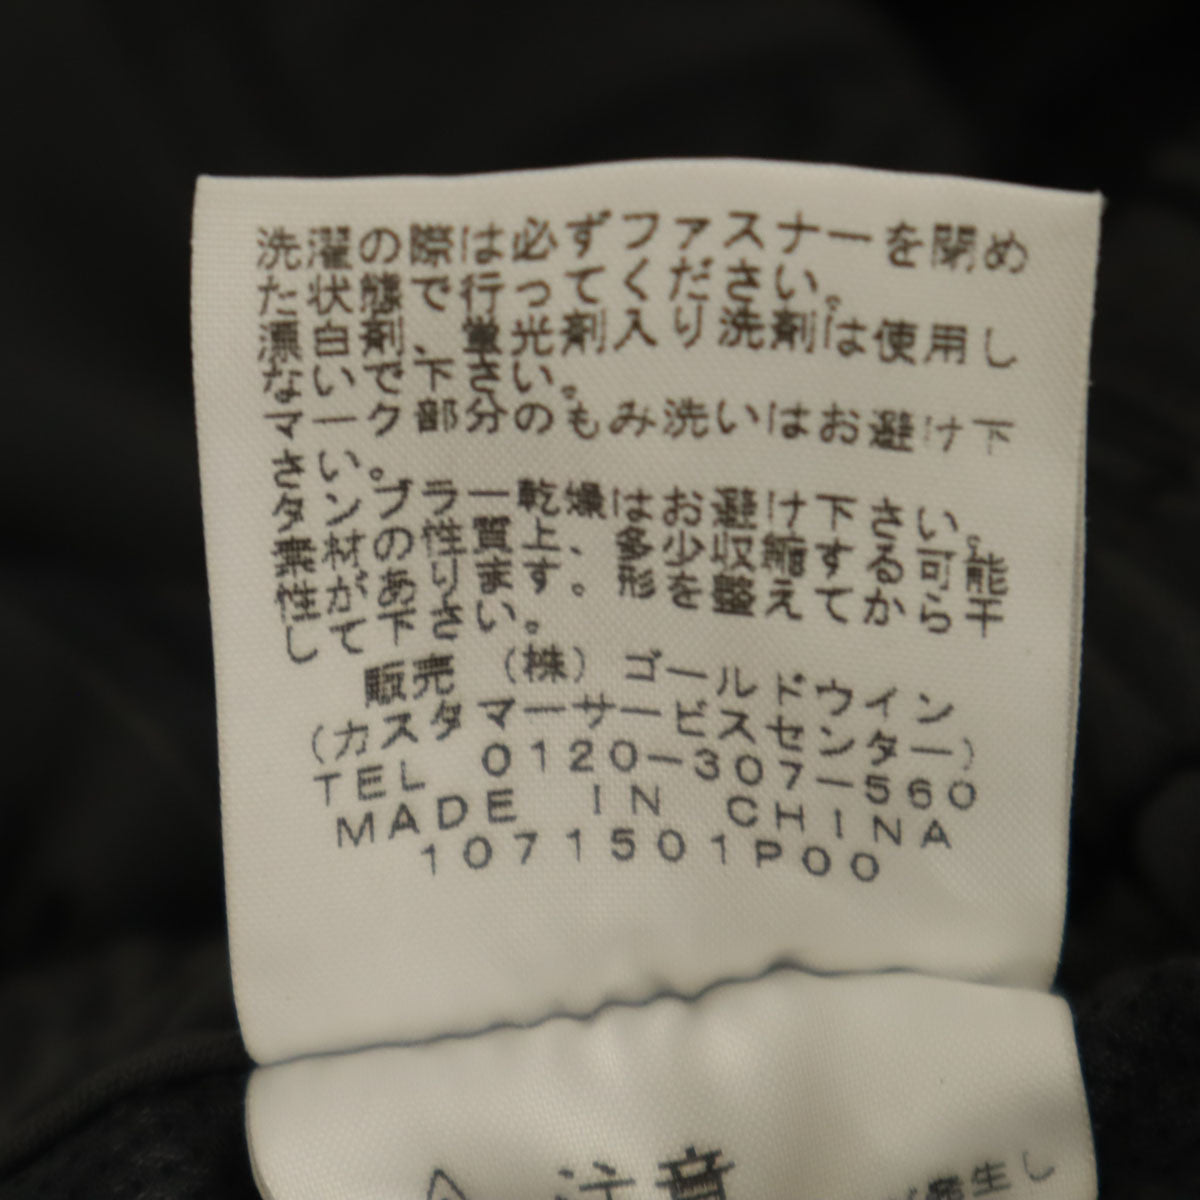 洗濯の際は必ずファスナーを閉め
た状態で行ってください。
漂白剤、蛍光剤入り洗剤は使用し
ないで下さい。
マーク部分のもみ洗いはお避け下
さい。
タンブラー乾燥はお避け下さい。
素材の性質上、多少収縮する可能
性があります。形を整えてから干
して下さい。
販売 (株)ゴールドウイン
(カスタマーサービスセンター)
TEL 0120-307-560
MADE IN CHINA
1071501P00
注意
発生し